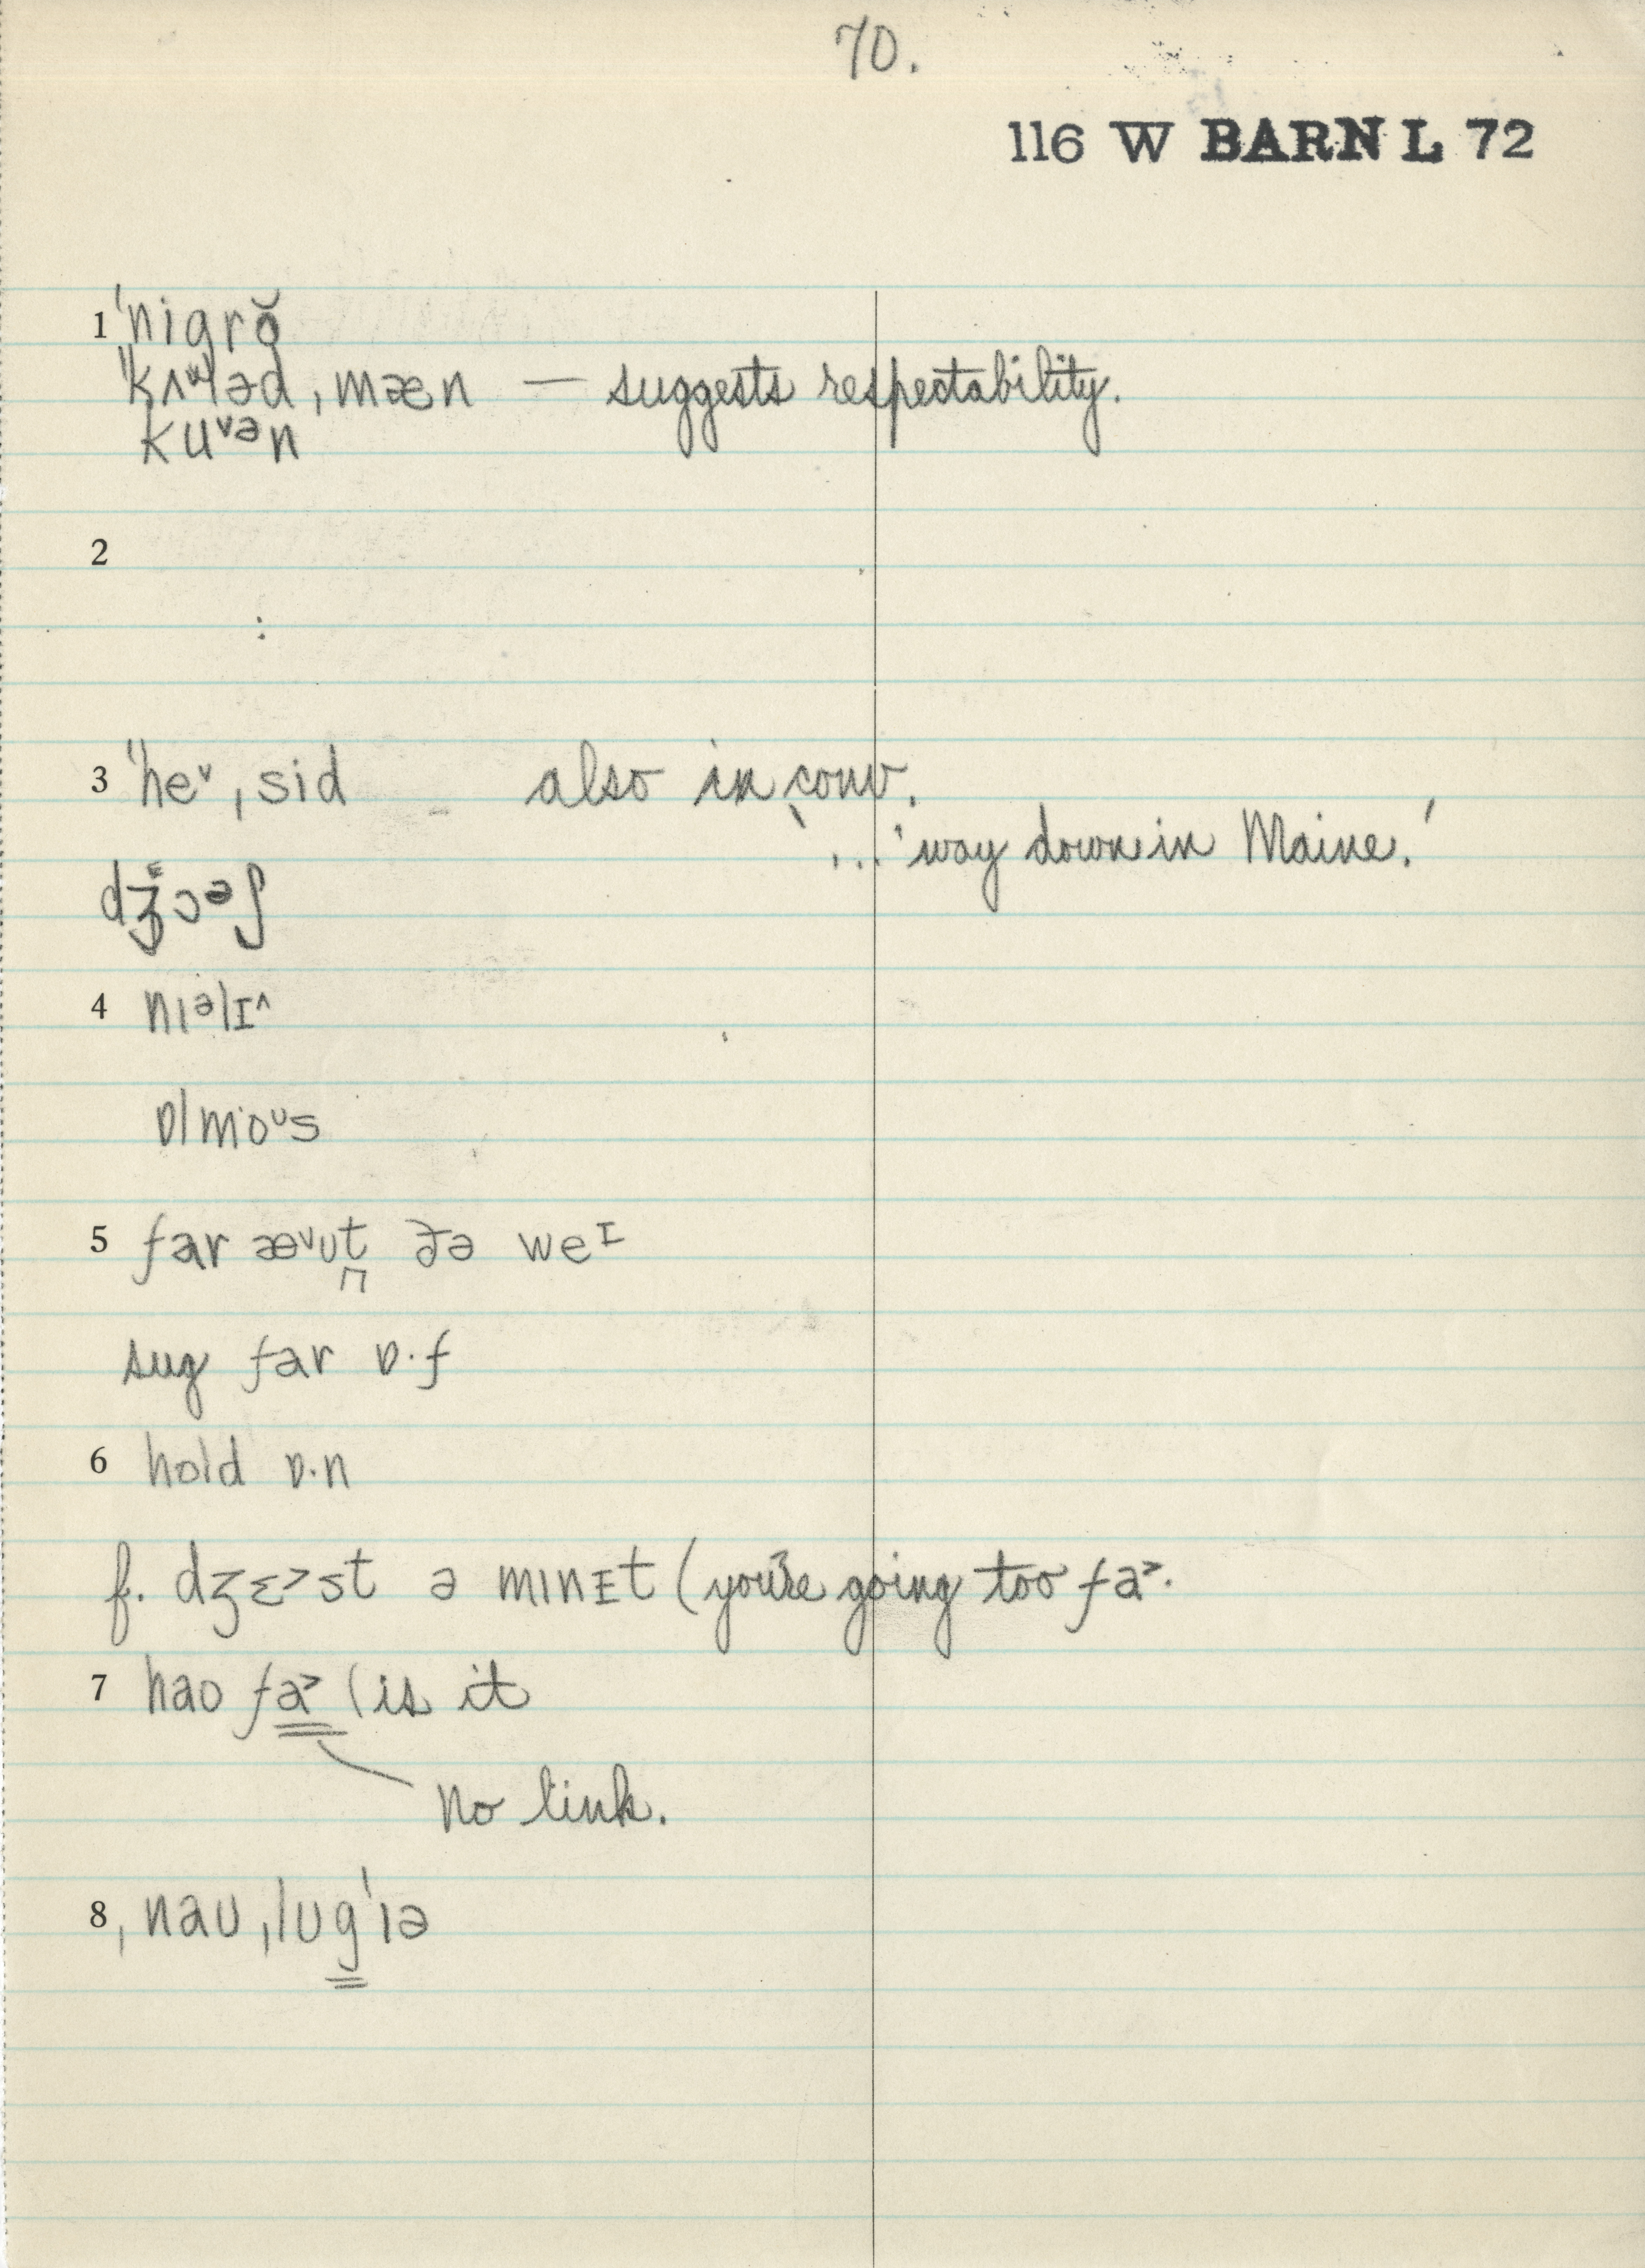 70.
116 W BARN L 72
1 ˈnigrŏ
ˈˈkʌᵚləd ˌmæn — suggests respectability.
kuᵛᵊn
2
:
3 ˈˈheᵛ ˌsid also in conv.
... 'way down in Maine.'
dʒɔᵊʃ
4 nɪᵊlɪ^
ɒlmoᵘs
5 far æᵛʊt ðə weᴵ
sug far ɒ·f
6 hold ɒ·n
f. dʒɛ˃st ə mɪnɪt (you're going too fa˃.
7 hao fa˃ (is it
No link.
8 ˌnaʊ ˌlʊgˈɪə